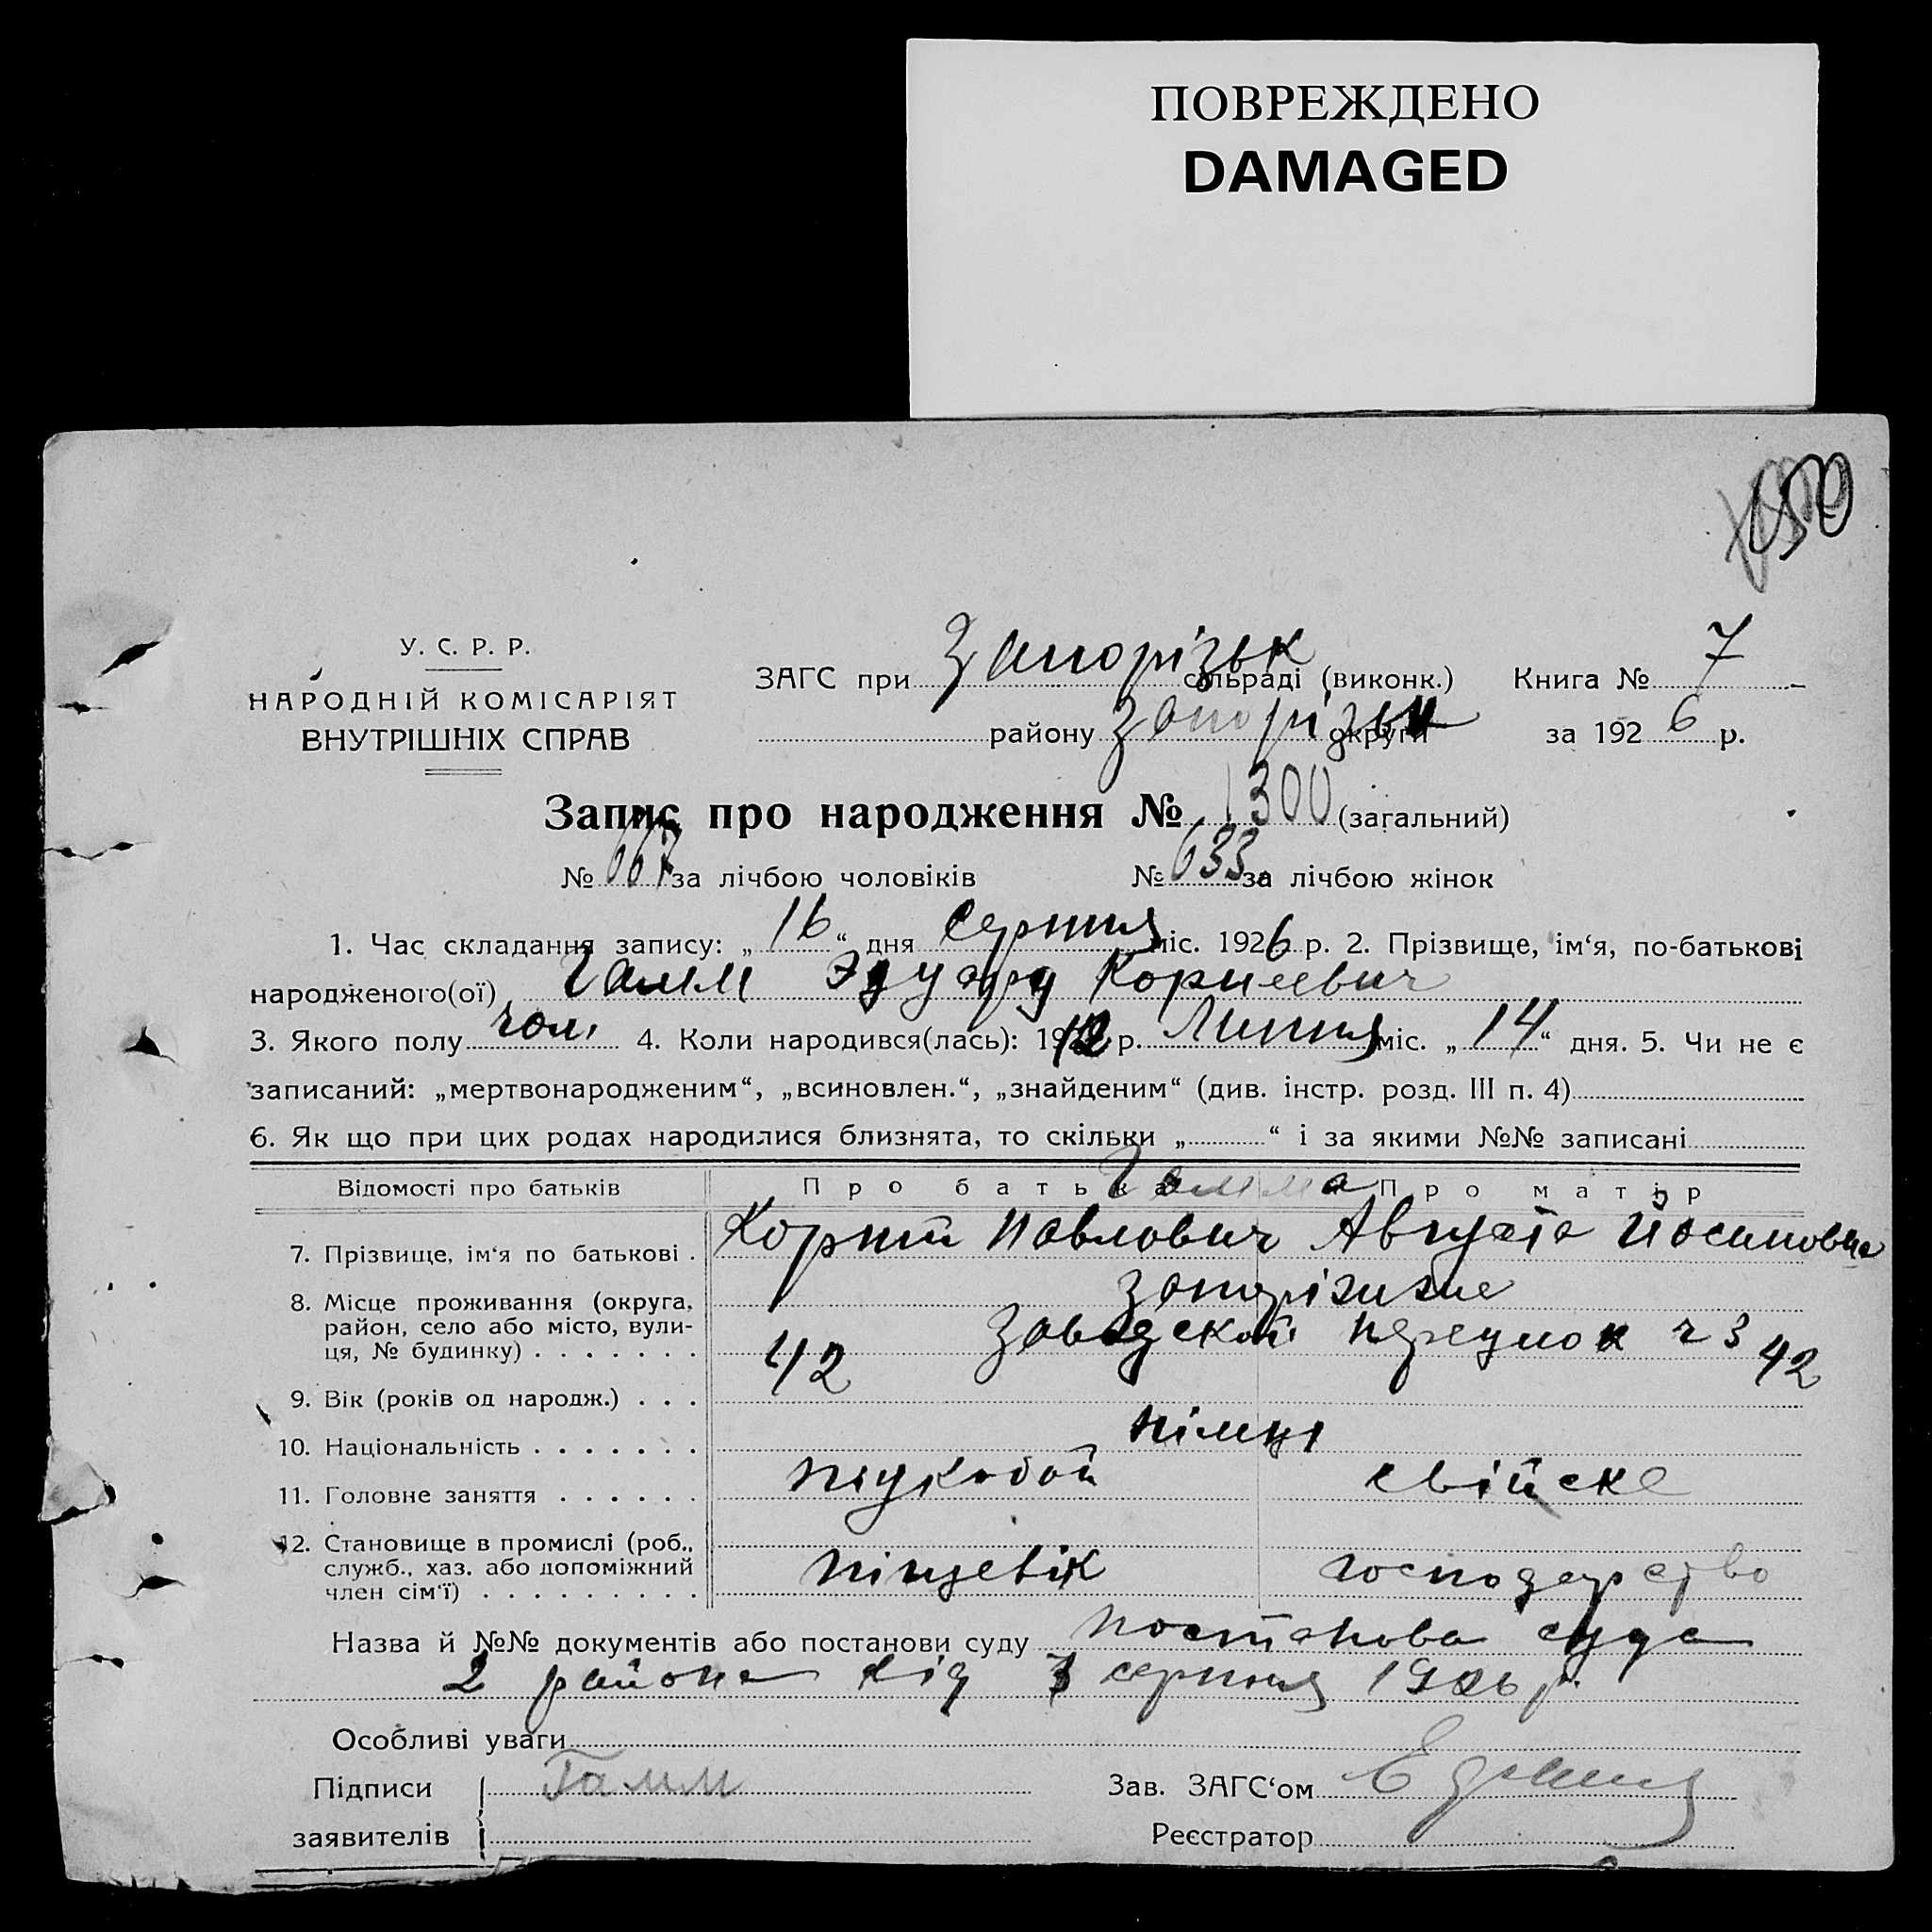 ПОВРЕЖДЕНО
DAMAGED
У. С. Р. Р.
НАРОДНІЙ КОМІСАРІЯТ
ВНУТРІШНІХ СПРАВ
ЗАГС при Запорізьк сільраді (виконк.) Книга № 7
району Запорізьк округи за 1926 р.
Запис про народження № 1300 (загальний)
№ 667 за лічбою чоловіків № 633 за лічбою жінок
1. Час складання запису: „16“ дня Серпня міс. 1926 р. 2. Прізвище, ім‘я, по-батькові
народженого(ої) Гамм Эдуард Корнеевич
3. Якого полу чол. 4. Коли народився(лась): 1912 р. Липня міс. „14“ дня. 5. Чи не є
записаний: „мертвонародженим“, „всиновлен.“, „знайденим“ (див. інстр. розд. III п. 4)
6. Як що при цих родах народилися близнята, то скільки „ “ і за якими №№ записані
Відомості про батьків Про батька Гамма Про матір
7. Прізвище, ім‘я по батькові . Корній Павлович Августа Йосиповна
8. Місце проживання (округа, Запоріжже
район, село або місто, вули- Заводской переулок ч 3
ця, № будинку) . . . . . . .
9. Вік (років од народж.) . . . 42 42
10. Національність . . . . . . . німці
11. Головне заняття . . . . . . свійске
12. Становище в промислі (роб.,
служб., хаз. або допоміжний господарство
член сім‘ї) . . . . . . . . .
Назва й №№ документів або постанови суду постанова суда
2 района від 3 серпня 1926 р.
Особливі уваги
Підписи Гамм Зав. ЗАГС‘ом
заявителів Реєстратор